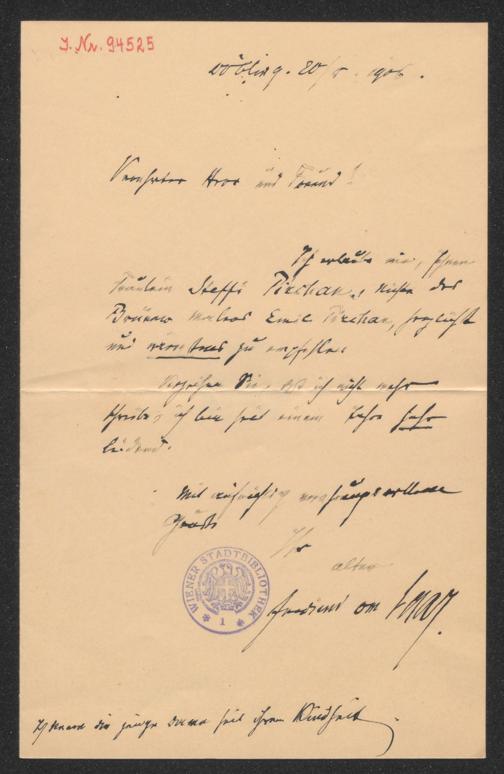 J. Nr. 94525
Döbling. 20/5. 1906.
Verehrter Herr und Freund!
Ich erlaube mir, Ihnen
Fräulein Steffi Pirchan, Nichte des
Brünner Malers Emil Pirchan, herzlichst
und wärmstens zu empfehlen.
Verzeihen Sie, daß ich nicht mehr
schreibe, ich bin seit einem Jahre sehr
leidend.
Mit aufrichtig verehrungsvollem
Gruße
Ihr
alter
Ferdinand von Saar.
WIENER STADTBIBLIOTHEK
1
Ich kenne die junge Dame seit ihrer Kindheit.